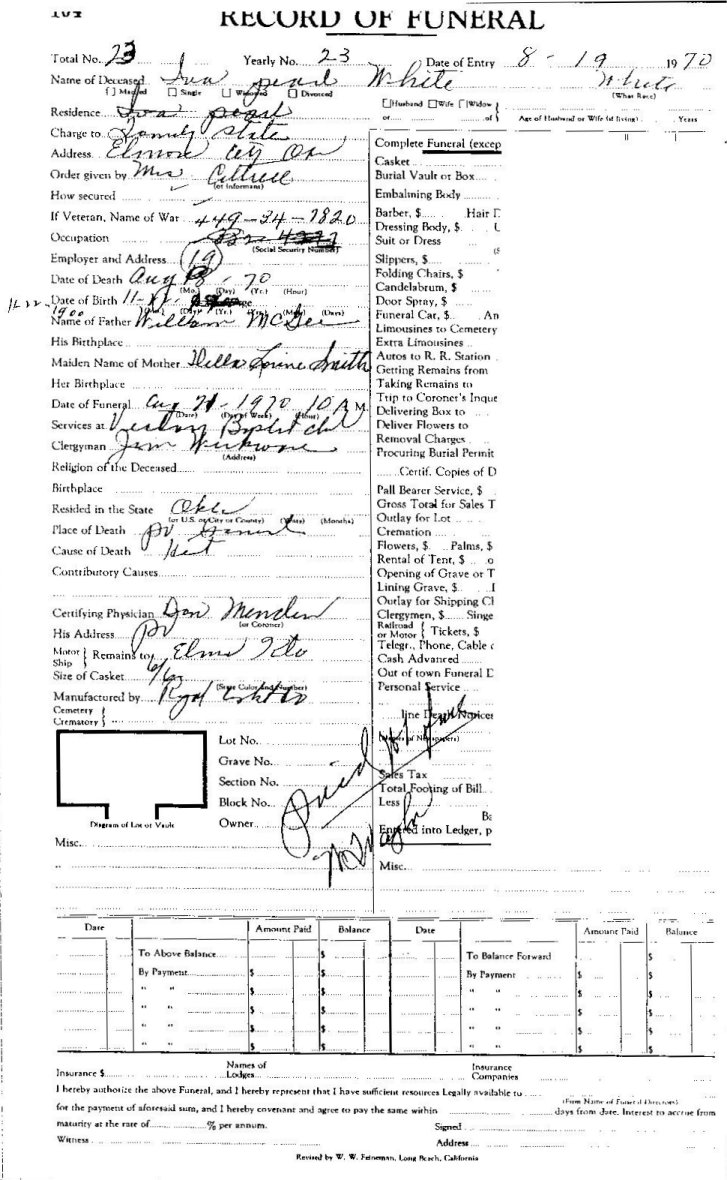 104 RECORD OF FUNERAL
Total No. 23 Yearly No. 23 Date of Entry 8 - 19 1970
Name of Deceased Iva pearl White White
[ ] Married [ ] Single [ ] Widowed [ ] Divorced (What Race)
Residence Iva pearl [ ] Husband [ ] Wife [ ] Widow
or of Age of Husband or Wife (if living) Years
Charge to Family State
Address Elmore City Ok
Order given by Mrs
(or informant)
How secured
If Veteran, Name of War 449-34-7820
Occupation
(Social Security Number)
Employer and Address (19)
Date of Death Aug - 70
(Mo.) (Day) (Yr.) (Hour)
Date of Birth 11-
1900
Name of Father William McGee
His Birthplace
Maiden Name of Mother Della Smith
Her Birthplace
Date of Funeral Aug 21 - 1970 10 A M.
(Date) (Day of Week) (Hour)
Services at Baptist
Clergyman Jim
(Address)
Religion of the Deceased
Birthplace
Resided in the State Okla
(or U.S. or City or County) (Years) (Months)
Place of Death PV General
Cause of Death
Contributory Causes
Certifying Physician Don
(or Coroner)
His Address PV
Motor Ship } Remains to
Size of Casket 6/6
(State Color and Number)
Manufactured by Royal
Cemetery
Crematory }
Complete Funeral (excep
Casket
Burial Vault or Box
Embalming Body
Barber, $ Hair D
Dressing Body, $ U
Suit or Dress
(S
Slippers, $
Folding Chairs, $
Candelabrum, $
Door Spray, $
Funeral Car, $ An
Limousines to Cemetery
Extra Limousines
Autos to R. R. Station
Getting Remains from
Taking Remains to
Trip to Coroner's Inque
Delivering Box to
Deliver Flowers to
Removal Charges
Procuring Burial Permit
Certif. Copies of D
Pall Bearer Service, $
Gross Total for Sales T
Outlay for Lot
Cremation
Flowers, $ Palms, $
Rental of Tent, $ o
Opening of Grave or T
Lining Grave, $ I
Outlay for Shipping Cl
Clergymen, $ Singe
Railroad or Motor } Tickets, $
Telegr., Phone, Cable c
Cash Advanced
Out of town Funeral D
Personal Service
line Death Notices
(Names of Newspapers)
Sales Tax
Total Footing of Bill
Less
Ba
Entered into Ledger, p
Misc.
Lot No.
Grave No.
Section No.
Block No.
Owner
Paid
Diagram of Lot or Vault
Misc.
Date Amount Paid Balance Date Amount Paid Balance
To Above Balance $ To Balance Forward $
By Payment $ $ By Payment $ $
" " $ $ " " $ $
" " $ $ " " $ $
" " $ $ " " $ $
" " $ $ " " $ $
Insurance $ Names of Lodges Insurance Companies
I hereby authorize the above Funeral, and I hereby represent that I have sufficient resources Legally available to
(Firm Name of Funeral Directors)
for the payment of aforesaid sum, and I hereby covenant and agree to pay the same within days from date. Interest to accrue from
maturity at the rate of % per annum. Signed
Witness Address
Revised by W. W. Feineman, Long Beach, California